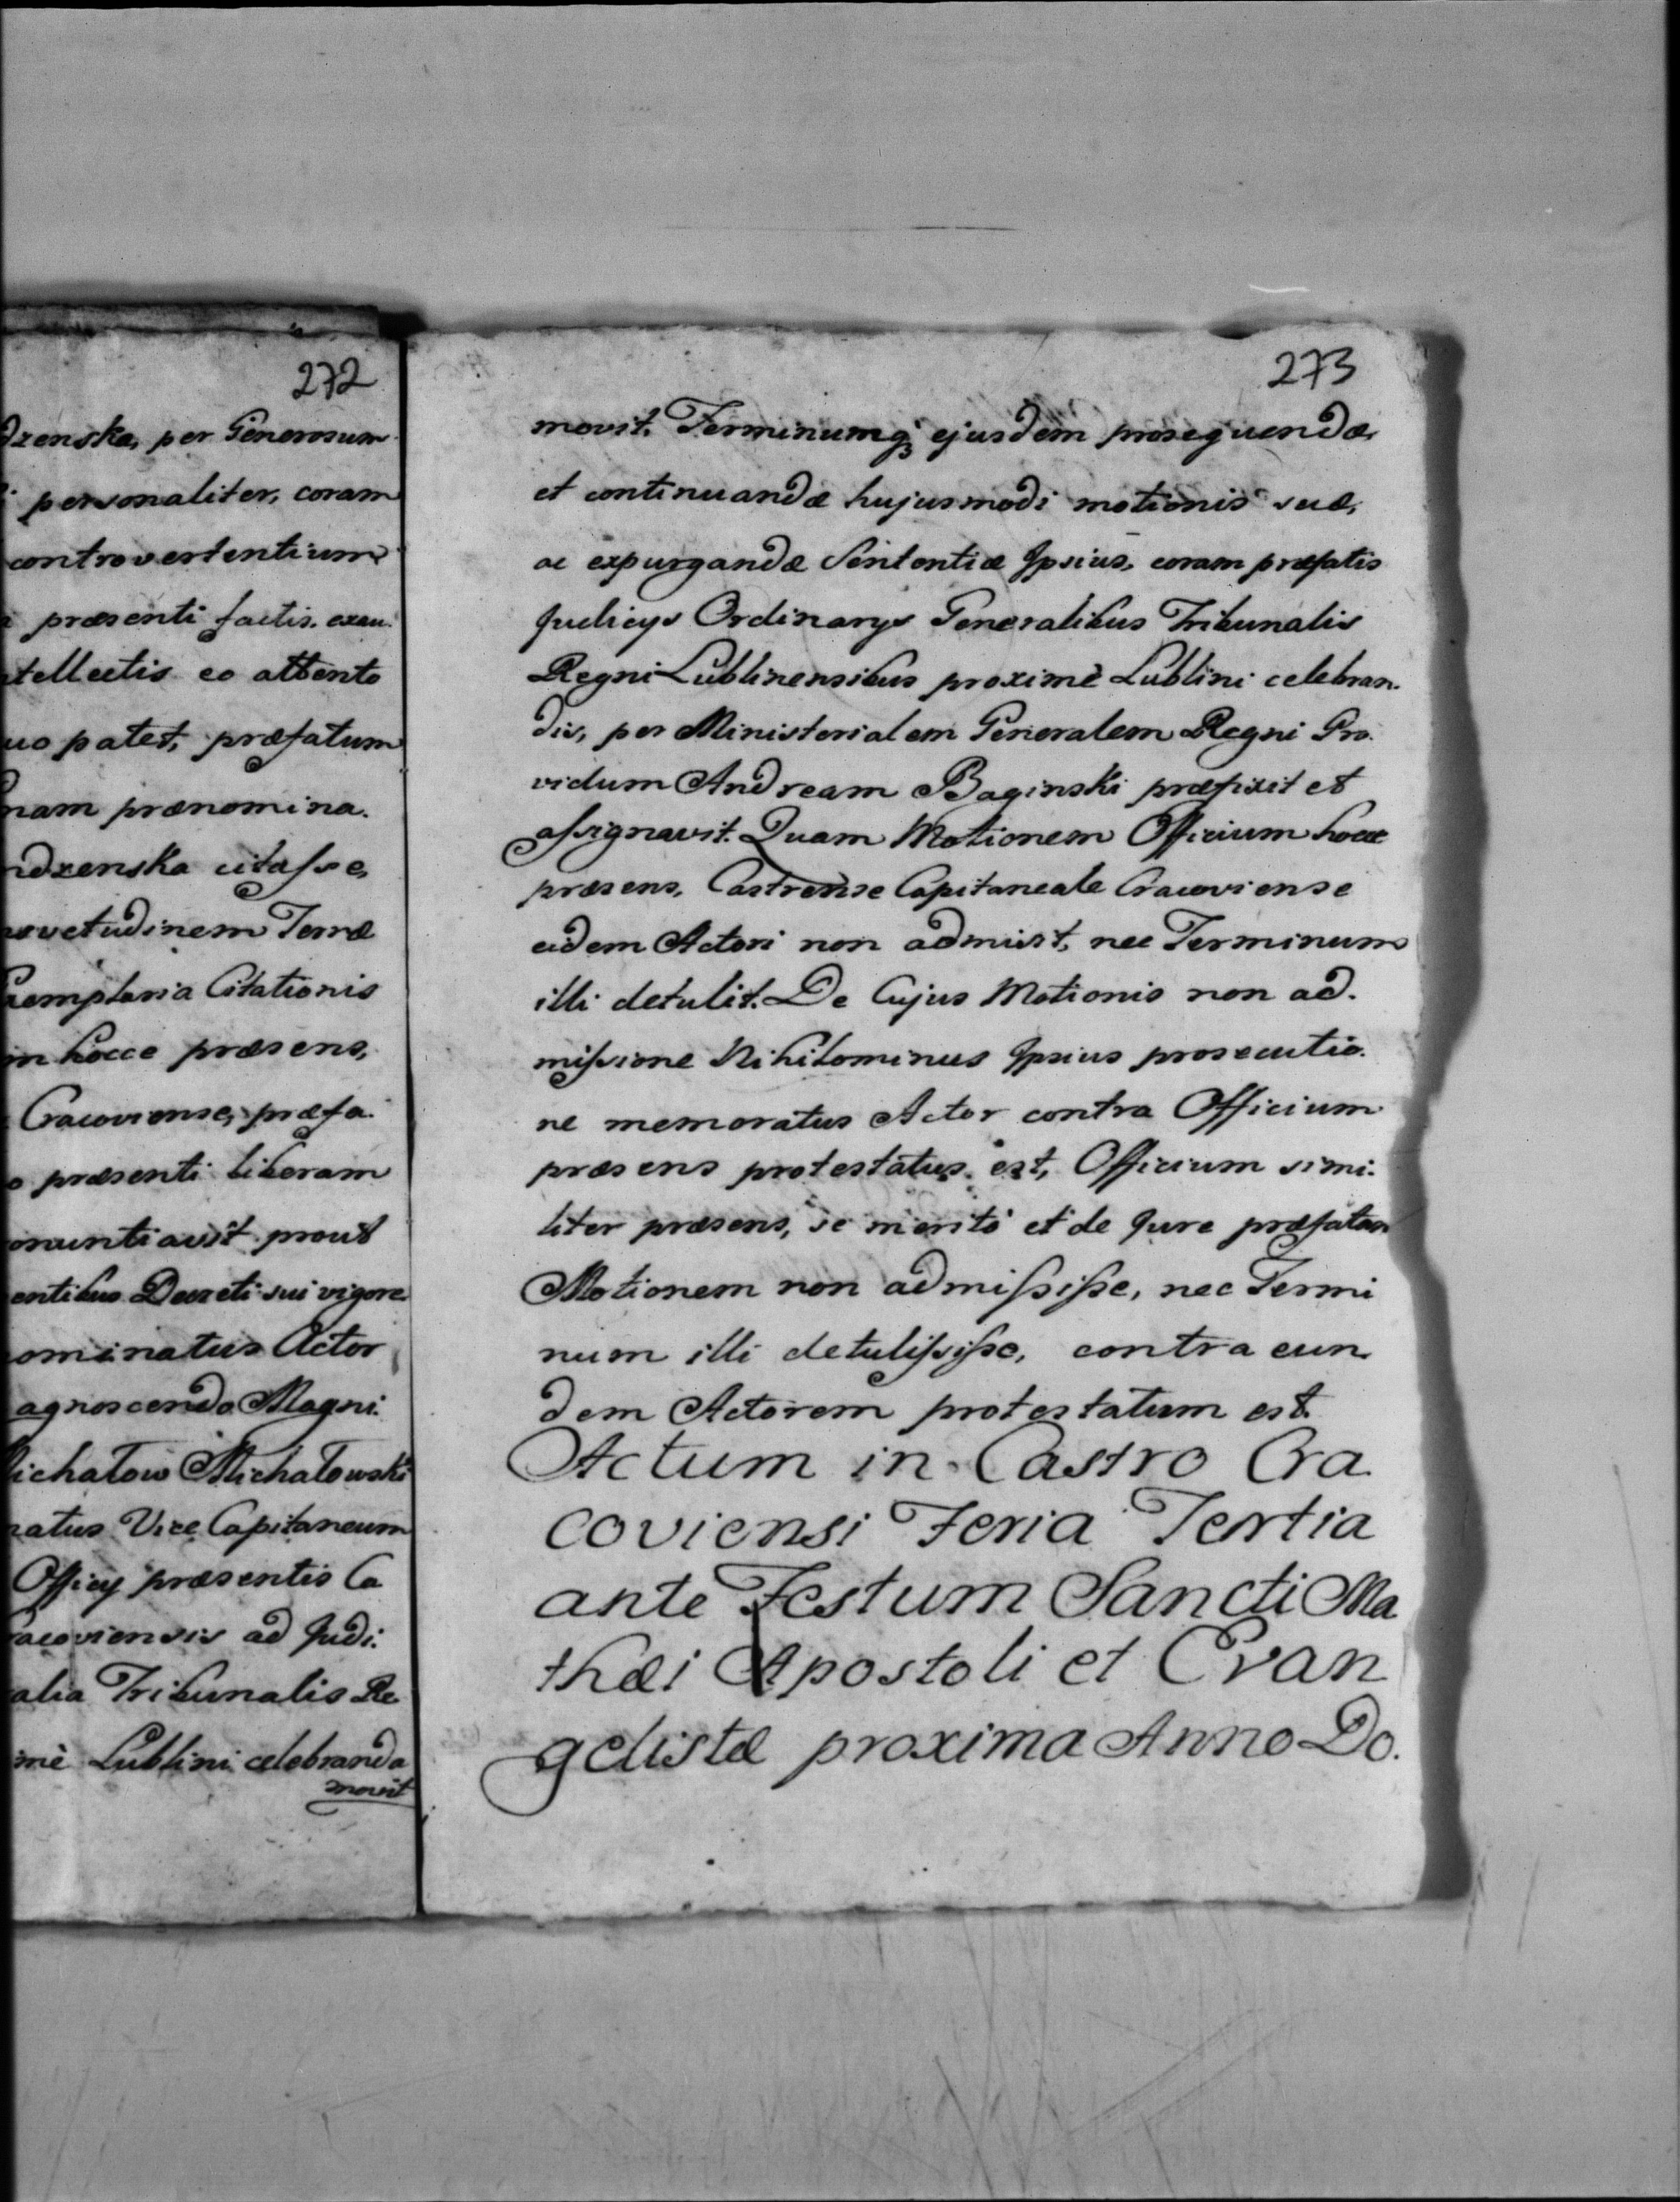 272
dzenska, per Generosum
personaliter, coram
controvertentium
præsenti factis. exau.
tellectis eo attento
uo patet, præfatum
nam prænomina.
ndzenska citaſse,
svetudinem Terræ
xemplaria Citationis
in hocce præsens,
Cracoviense, præfa.
o præsenti liberam
onuntiavit prout
entibus Decreti sui vigore
ominatus Actor
agnoscendo Magni.
ichatow Michatowski
natus Vice Capitaneum
Officy præsentis Ca
racoviensis ad Judi:
alia Tribunalis Re
imè Lublini celebranda
movit
273
movit. Terminumq; ejusdem prosequendæ,
et continuandæ hujusmodi motionis suæ,
ac expurgandæ Sententiæ Ipsius, coram præfatis
Judicys Ordinarys Generalibus Tribunalis
Regni Lublinensibus proximè Lublini celebran.
dis, per Ministerialem Generalem Regni Pro.
vidum Andream Baginski præfixit et
aſsignavit. Quam Motionem Officium hocce
præsens, Castrense Capitaneale Cracoviense
eidem Actori non admisit, nec Terminum
illi detulit. De Cujus Motionis non ad.
miſsione Nihilominus Ipsius prosecutio.
ne memoratus Actor contra Officium
præsens protestatus est, Officium simi.
liter præsens, se meritò et de Jure præfatam
Motionem non admiſsiſse, nec Termi
num illi detuliſsiſse, contra eun
dem Actorem protestatum est.
Actum in Castro Cra
coviensi Feria Tertia
ante Festum Sancti Ma
thæi Apostoli et Evan
gelistæ proxima Anno Do.